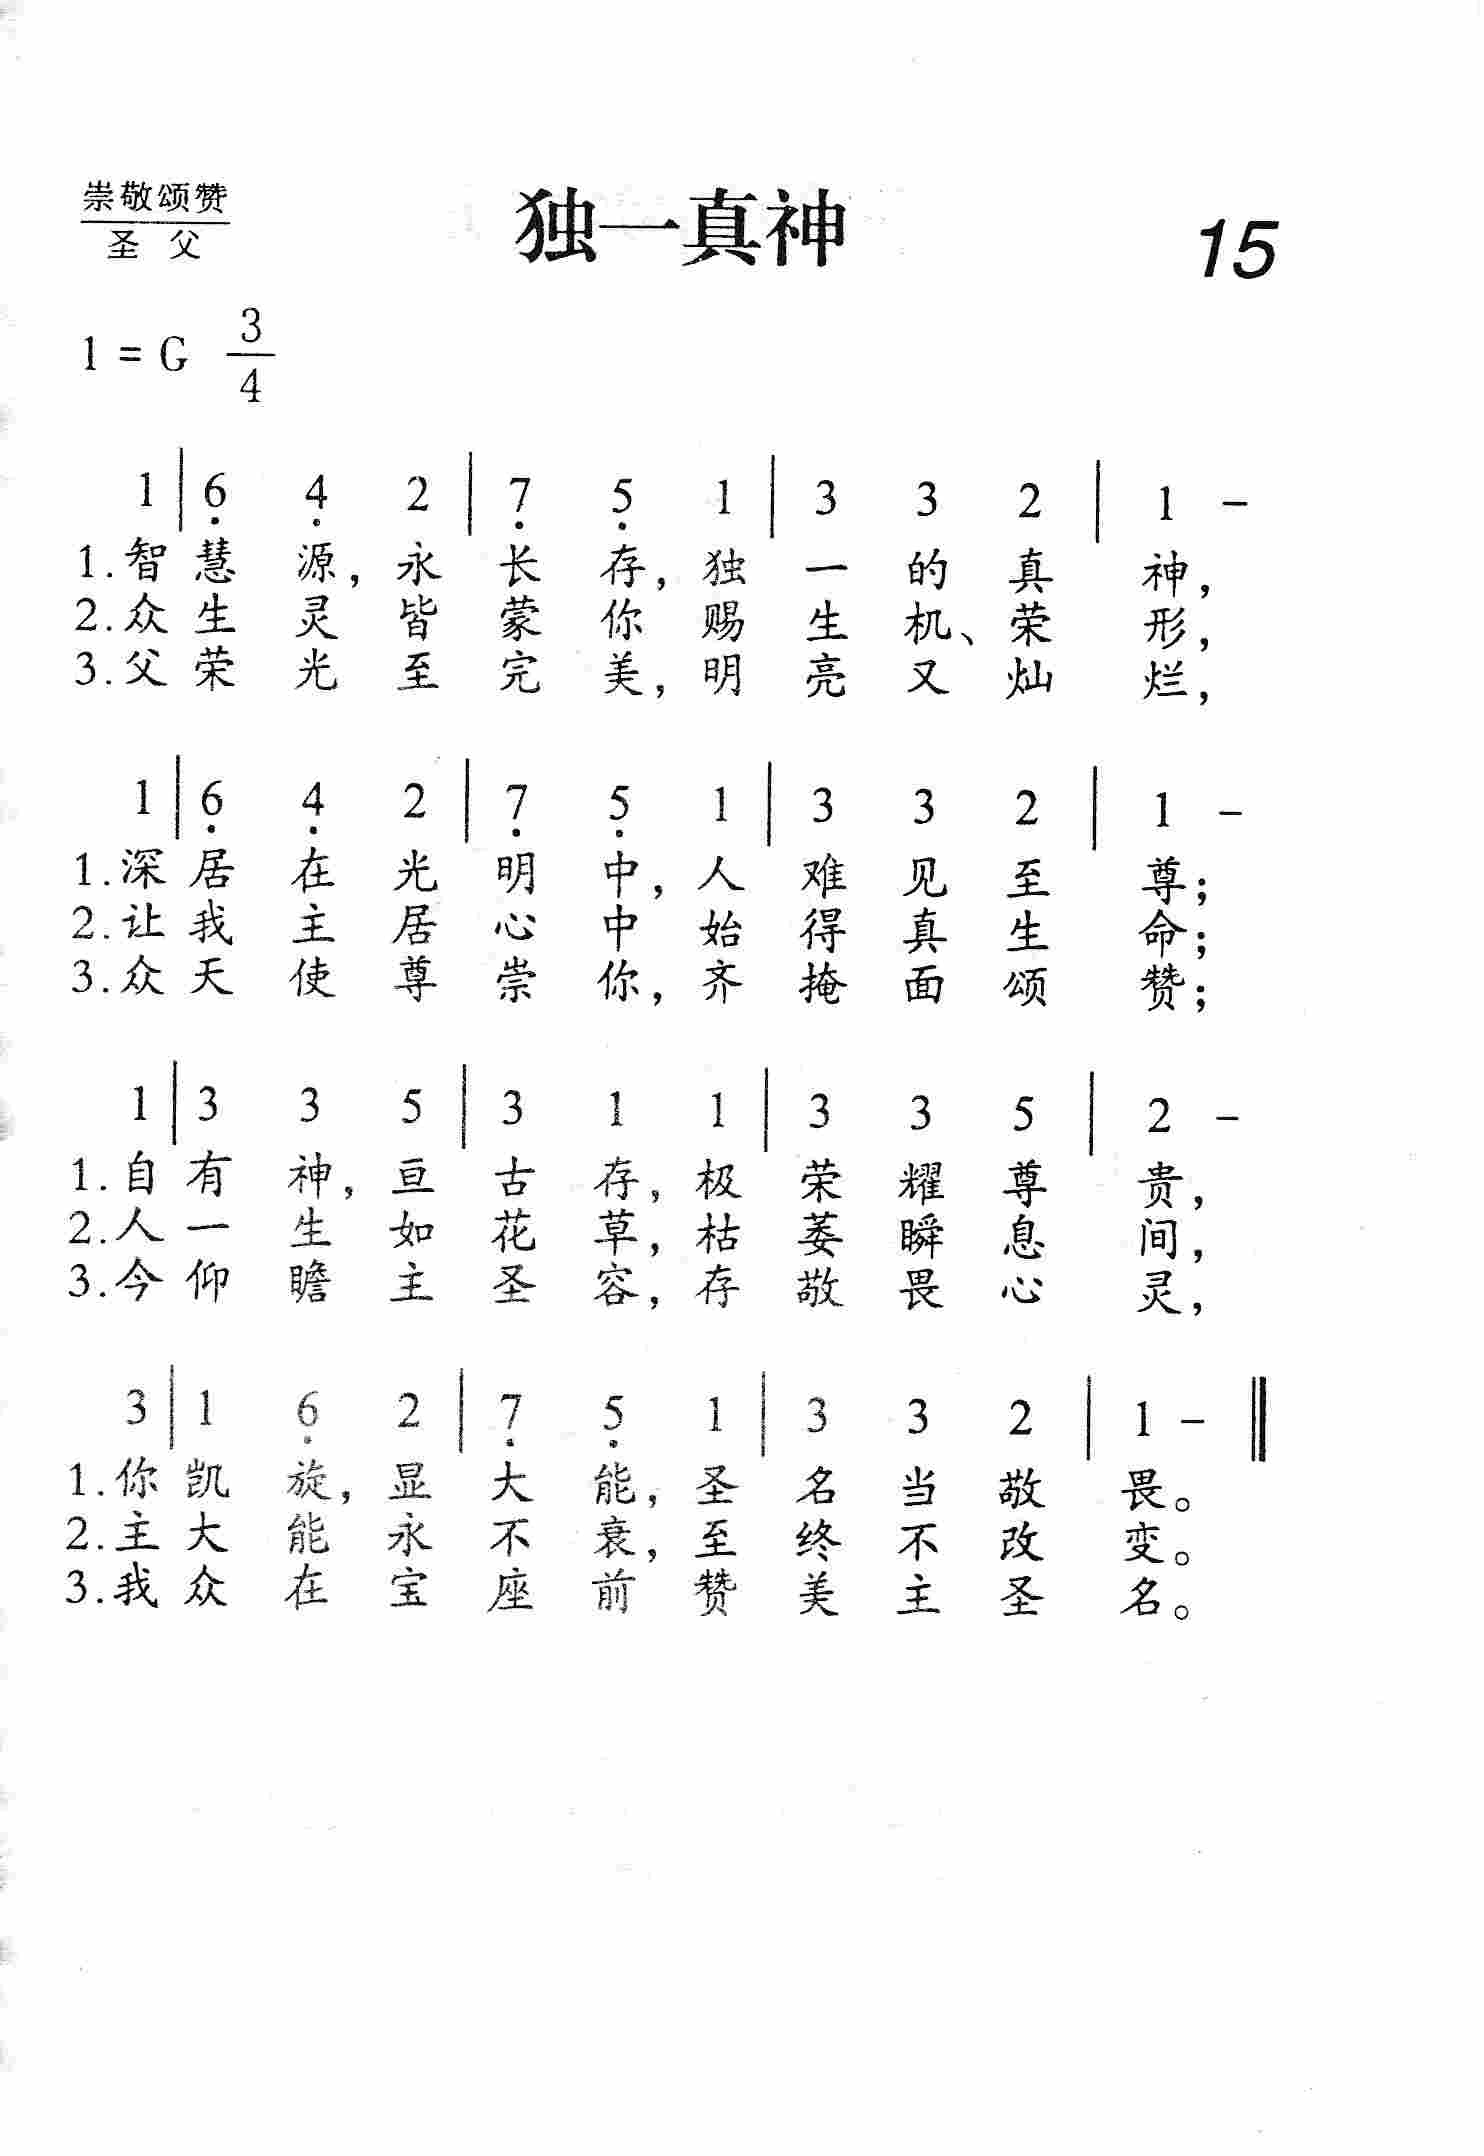 崇敬颂赞
圣 父
独一真神
15
1 = G 3/4
1 | 6̣ 4̣ 2 | 7̣ 5̣ 1 | 3 3 2 | 1 –
1.智慧源，永长存，独一的真神，
2.众生灵皆蒙你赐生机、荣形，
3.父荣光至完美，明亮又灿烂，
1 | 6̣ 4̣ 2 | 7̣ 5̣ 1 | 3 3 2 | 1 –
1.深居在光明中，人难见至尊；
2.让我主居心中始得真生命；
3.众天使尊崇你，齐掩面颂赞；
1 | 3 3 5 | 3 1 1 | 3 3 5 | 2 –
1.自有神，亘古存，极荣耀尊贵，
2.人一生如花草，枯萎瞬息间，
3.今仰瞻主圣容，存敬畏心灵，
3 | 1 6̣ 2 | 7̣ 5̣ 1 | 3 3 2 | 1 – ‖
1.你凯旋，显大能，圣名当敬畏。
2.主大能永不衰，至终不改变。
3.我众在宝座前赞美主圣名。